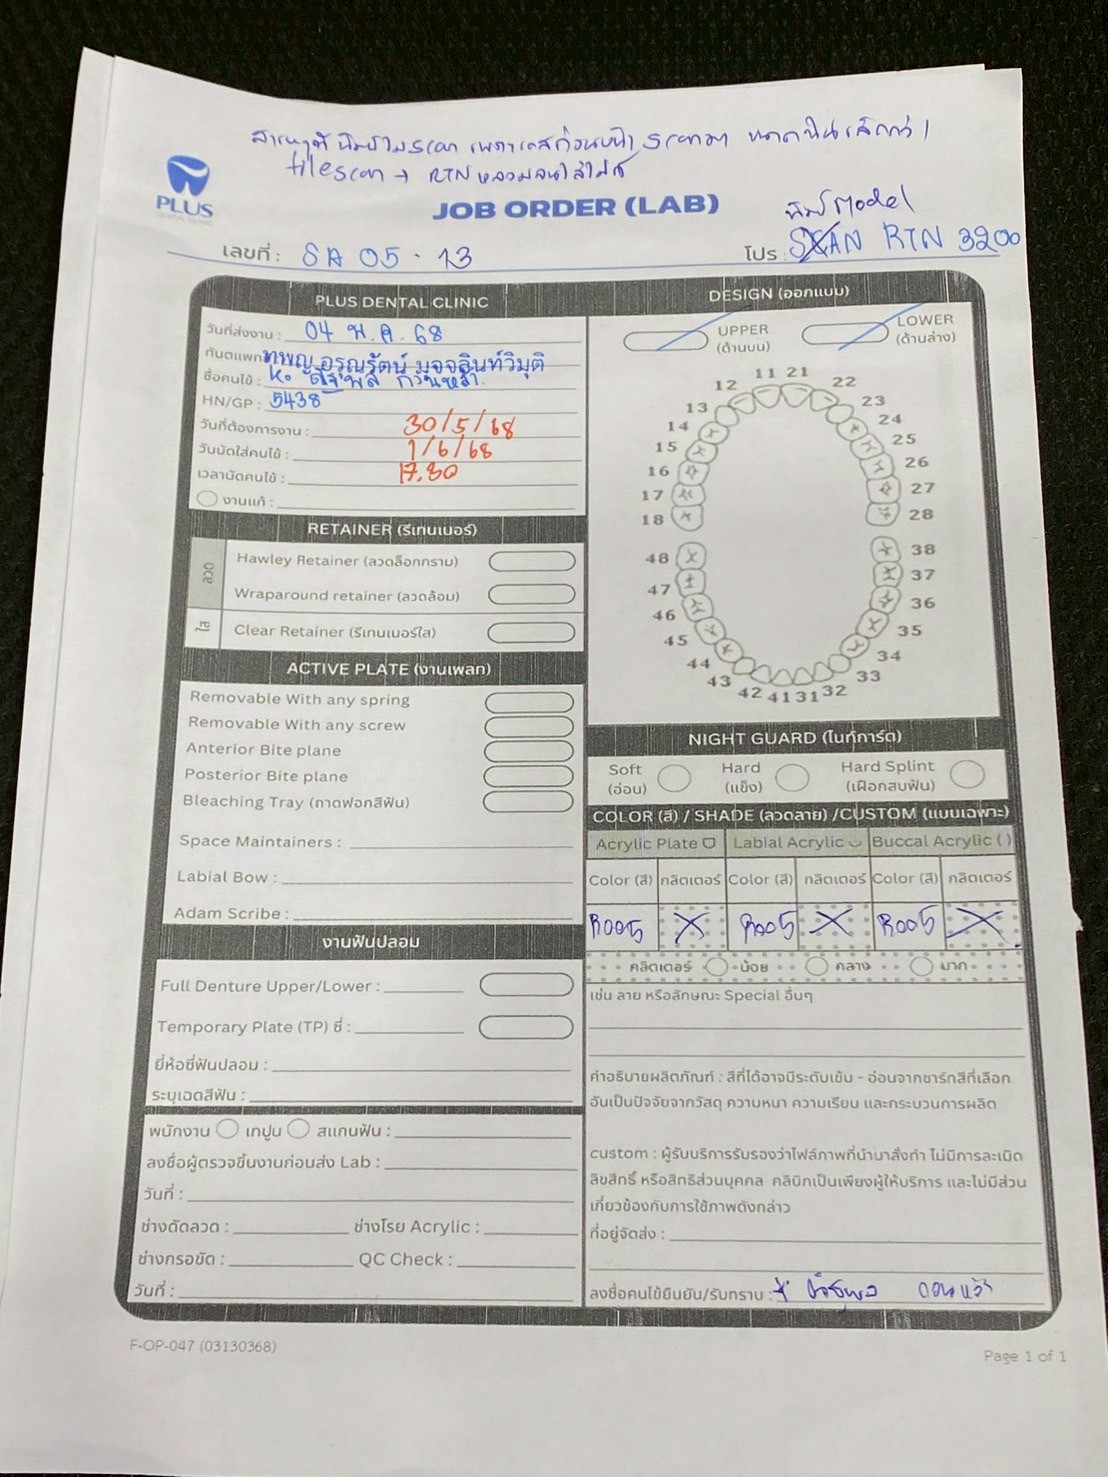 สาเหตุที่ พิมพ์ไม่scan เพราะเคสก่อนหน้า scanมา
filescan → RTNหลวมจนใส่ไม่ได้
PLUS
DENTAL CLINIC
JOB ORDER (LAB)
พิมพ์Model
เลขที่ : SA 05 - 13
โปร : SCAN RTN 3200
PLUS DENTAL CLINIC
วันที่ส่งงาน : 04 พ.ค. 68
ทันตแพทย์ ทพญ.อรุณรัตน์ มุจจลินท์วิมุติ
ชื่อคนไข้ : K.
HN/GP : 5438
วันที่ต้องการงาน : 30/5/68
วันนัดใส่คนไข้ : 1/6/68
เวลานัดคนไข้ : 17.30
งานแก้ :
RETAINER (รีเทนเนอร์)
ลวด
Hawley Retainer (ลวดล็อกกราม)
Wraparound retainer (ลวดล้อม)
ใส
Clear Retainer (รีเทนเนอร์ใส)
ACTIVE PLATE (งานเพลท)
Removable With any spring
Removable With any screw
Anterior Bite plane
Posterior Bite plane
Bleaching Tray (ถาดฟอกสีฟัน)
Space Maintainers :
Labial Bow :
Adam Scribe :
งานฟันปลอม
Full Denture Upper/Lower :
Temporary Plate (TP) ซี่ :
ยี่ห้อซี่ฟันปลอม :
ระบุเฉดสีฟัน :
พนักงาน เทปูน สแกนฟัน :
ลงชื่อผู้ตรวจชิ้นงานก่อนส่ง Lab :
วันที่ :
ช่างดัดลวด : ช่างโรย Acrylic :
ช่างกรอขัด : QC Check :
วันที่ :
DESIGN (ออกแบบ)
UPPER (ด้านบน)
LOWER (ด้านล่าง)
11 21
12 22
13 23
14 24
15 25
16 26
17 27
18 28
48 38
47 37
46 36
45 35
44 34
43 33
42 41 31 32
NIGHT GUARD (ไนท์การ์ด)
Soft (อ่อน) Hard (แข็ง) Hard Splint (เฝือกสบฟัน)
COLOR (สี) / SHADE (ลวดลาย) /CUSTOM (แบบเฉพาะ)
Acrylic Plate Labial Acrylic Buccal Acrylic ( )
Color (สี) กลิตเตอร์ Color (สี) กลิตเตอร์ Color (สี) กลิตเตอร์
R005 X R005 X R005 X
กลิตเตอร์ น้อย กลาง มาก
เช่น ลาย หรือลักษณะ Special อื่นๆ
คำอธิบายผลิตภัณฑ์ : สีที่ได้อาจมีระดับเข้ม - อ่อนจากชาร์ทสีที่เลือก
อันเป็นปัจจัยจากวัสดุ ความหนา ความเรียบ และกระบวนการผลิต
custom : ผู้รับบริการรับรองว่าไฟล์ภาพที่นำมาสั่งทำ ไม่มีการละเมิด
ลิขสิทธิ์ หรือสิทธิส่วนบุคคล คลินิกเป็นเพียงผู้ให้บริการ และไม่มีส่วน
เกี่ยวข้องกับการใช้ภาพดังกล่าว
ที่อยู่จัดส่ง :
ลงชื่อคนไข้ยืนยัน/รับทราบ :
F-OP-047 (03130368)
Page 1 of 1